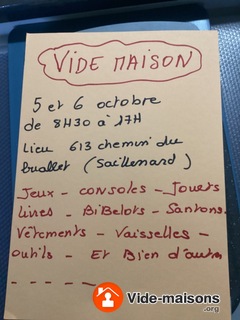 VIDE MAISON
5 et 6 octobre
de 8H30 à 17H
Lieu 613 chemin du
bruallet (Saillenard)
Jeux - consoles - Jouets
Livres - BiBelots - Santons.
Vêtments - Vaisselles -
outils - Et Bien d'autres
- - - - -
Vide-maisons
.org